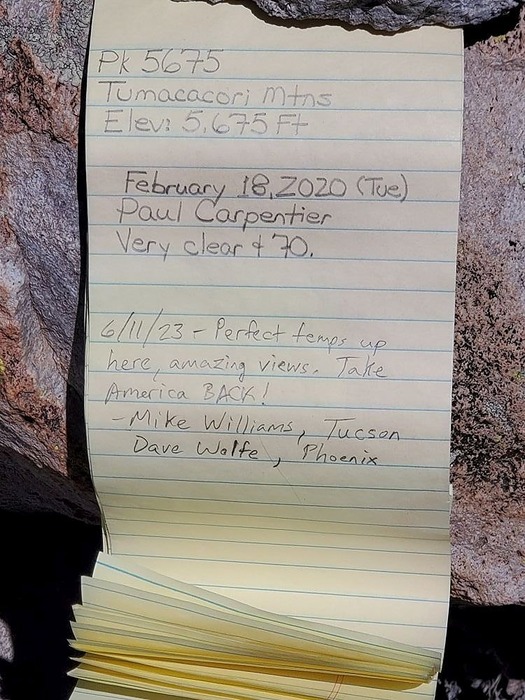 Pk 5675
Tumacacori Mtns
Elev: 5,675 Ft
February 18, 2020 (Tue)
Paul Carpentier
Very clear & 70.
6/11/23 - Perfect temps up
here, amazing views. Take
America BACK!
- Mike Williams, Tucson
Dave Wolfe, Phoenix